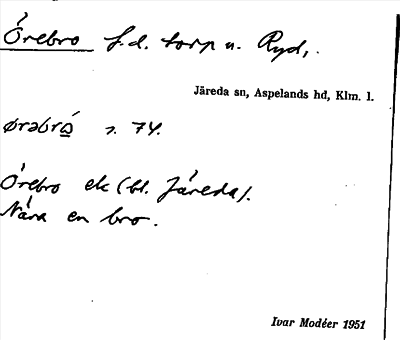 Örebro f.d. torp u. Ryd,
Järeda sn, Aspelands hd, Klm. l.
ørəbrώ̲ s. 74.
Örebro ek (bl. Järeda).
Nära en bro.
Ivar Modéer 1951